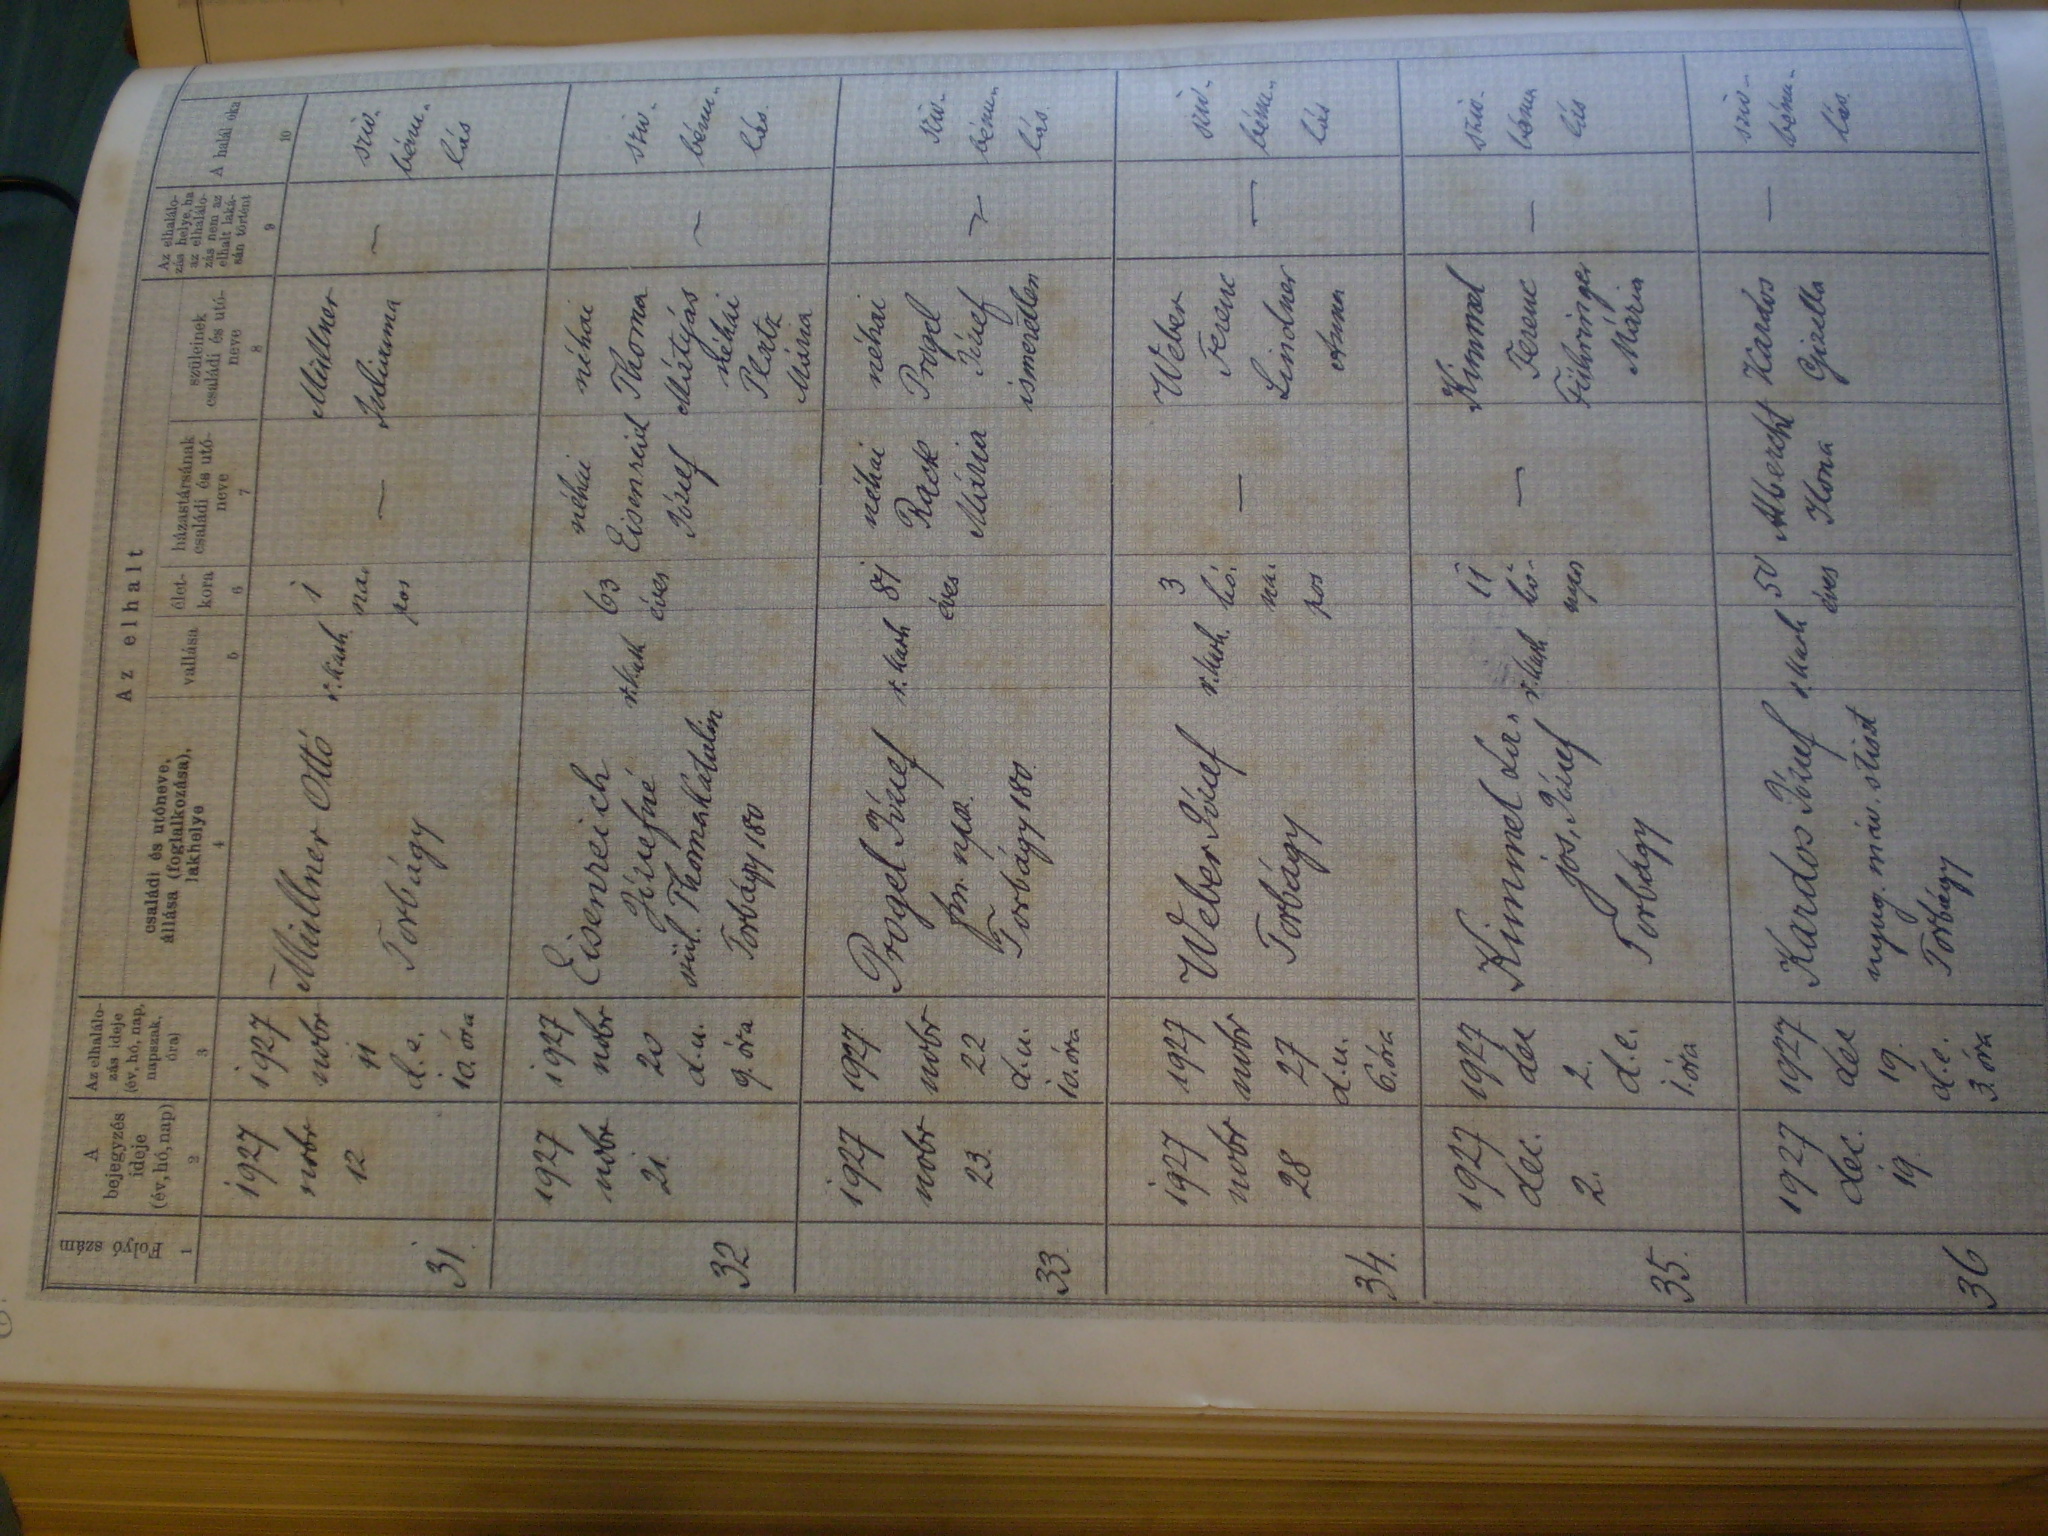 Az elhalt
Folyó
szám
A
bejegyzés
ideje
(év, hó, nap)
Az elhalálo-
zás ideje
(év, hó, nap,
napszak,
óra)
családi és utóneve,
állása (foglalkozása),
lakhelye
vallása
élet-
kora
házastársának
családi és utó-
neve
szüleinek
családi és utó-
neve
Az elhalálo-
zás helye, ha
az elhalálo-
zás nem az
elhalt laká-
sán történt
A halál oka
1
2
3
4
5
6
7
8
9
10
31.
1927
nobr
12
1927
nobr
11
d.e.
10. óra
Müllner Ottó
Torbágy
r. kath.
1
na-
pos
—
Müllner
Julianna
—
sziv-
bénu-
lás
32
1927
nobr
21.
1927
nobr
20
d.u.
9. óra
Eisenreich
Józsefné
szül. Thoma Katalin
Torbágy 180
r. kath
63
éves
néhai
Eisenreich
József
néhai
Thoma
Mátyás
néhai
Mária
—
sziv-
bénu-
lás.
33.
1927
nobr
23.
1927.
nobr
22
d.u.
10. óra
Progel József
Torbágy 180.
r. kath
81
éves
néhai
Rack
Mária
néhai
Progel
József
ismeretlen
—
sziv-
bénu-
lás.
34.
1927
nobr
28
1927
nobr
27
d.u.
6. óra
Weber József
Torbágy
r. kath.
3
hó-
na-
pos
—
Weber
Ferenc
Lindner
Anna
—
sziv-
bénu-
lás
35.
1927
dec.
2.
1927
dec
2.
d.e.
1. óra
Kimmel La-
jos, József
Torbágy
r. kath
11
hó-
npos
—
Kimmel
Ferenc
Führinger
Mária
—
sziv-
bénu
lás
36
1927
dec.
19.
1927
dec
19.
d.e.
3. óra
Kardos József
nyug. máv. stiszt
Torbágy
r. kath
50
éves
Albrecht
Ilona
Kardos
Gizella
—
sziv-
bénu-
lás.